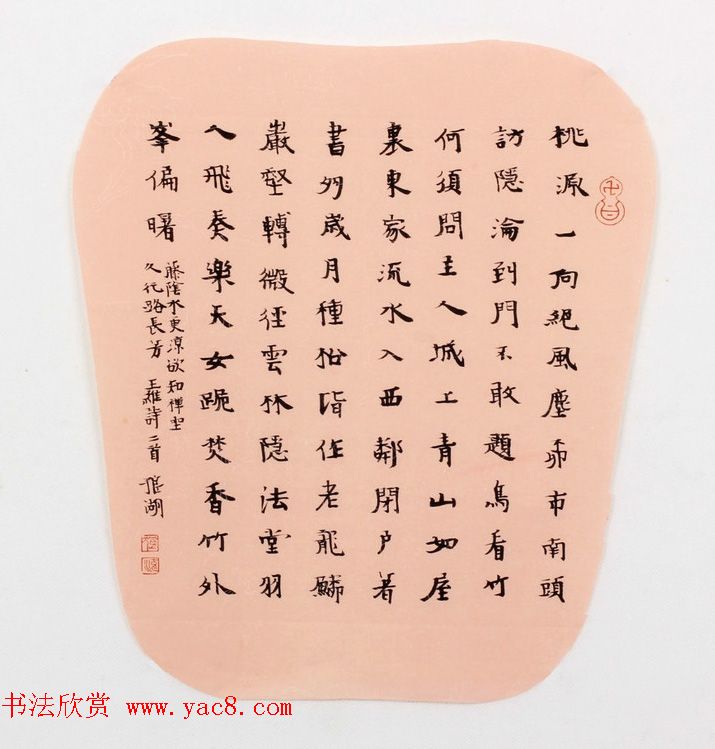 桃源一向絕風塵柳市南頭
訪隱淪到門不敢題鳥看竹
何須問主人城上青山如屋
裏東家流水入西鄰閉戶著
書多歲月種松皆作老龍鱗
巖壑轉微徑雲林隱法堂羽
人飛奏樂天女跪焚香竹外
峯偏曙
藤陰水更涼欲知禪坐
久行路長芳 王維詩二首 湖
书法欣赏 www.yac8.com